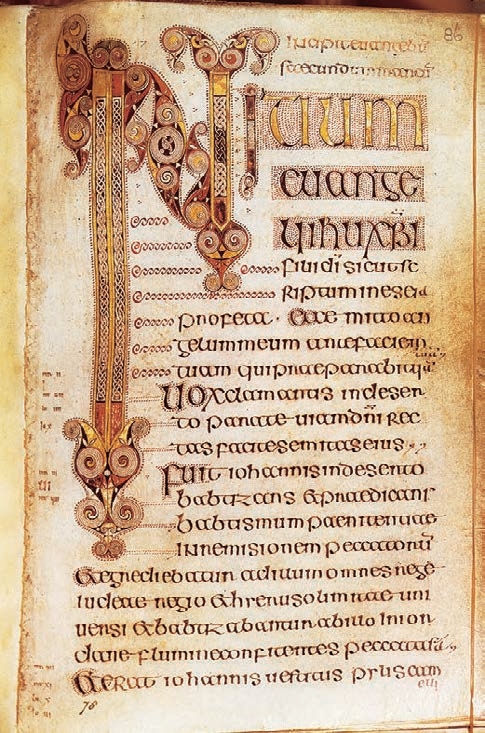 86
Incipit euangeliū
secundum marcū
INITIUM
euange
lii ihu xpi
filii dī sicut sc
riptum in eseia
profeta · Ecce mitto an
gelum meum ante faciem
tuam qui praeparabit uiā tuā
Uox clamantis in deser
to parate uiam dnī rec
tas facite semitas eius
Fuit iohannis in deserto
babtizans & praedicans
babtismum paenitentiae
in remisionem peccatorū
& egrediebatur ad illum omnes rege
iudeae regio & hierusolimitae uni
uersi & babtizabantur ab illo in ior
dane flumine confitentes peccata sua
& erat iohannis uestitus pilus cam
eli
78